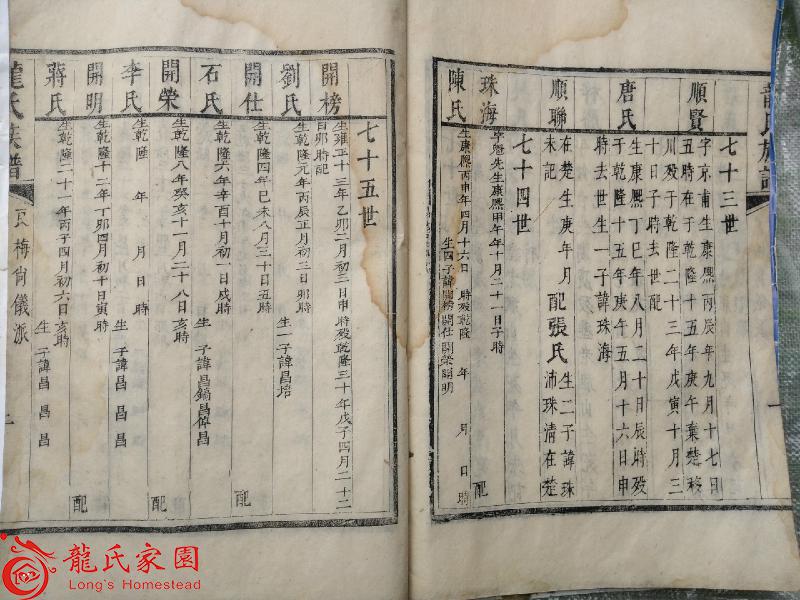 龍氏族譜
七十三世
順賢
字京甫生康熙丙辰年九月十七日
五時在于乾隆十五年庚午葉楚移
川殁于乾隆二十三年戊寅十月三
十日子時去世配
唐氏
生康熙丁巳年八月二十日辰時殁
于乾隆十五年庚午五月十六日申
時去世生一子諱珠海
順聯
在楚生庚年月 配張氏 生二子諱珠
未記 沛珠清在楚
七十四世
珠海
字魁先生康熙甲午年十月二十一日子時 配
陳氏
生康熙丙申年四月十六日 時殁乾隆 年 月 日 時
生四子諱開榜開仕開榮開明
七十五世
開榜
生雍正十三年乙卯二月初三日申時殁乾隆三十年戊子四月二十二
日卯時配
劉氏
生乾隆元年丙辰正月初三日卯時 生一子諱昌培
開仕
生乾隆四年己未八月三十日五時 配
石氏
生乾隆六年辛酉十月初一日戌時 生 子諱昌鎬昌倬昌
開榮
生乾隆八年癸亥十一月二十八日亥時 配
李氏
生乾隆 年 月 日 時 生 子諱昌昌昌
開明
生乾隆十二年丁卯四月初十日寅時 配
蔣氏
生乾隆二十一年丙子四月初六日亥時 生 子諱昌昌昌
龍氏族譜
良梅尙儀派
龍氏家園
Long's Homestead